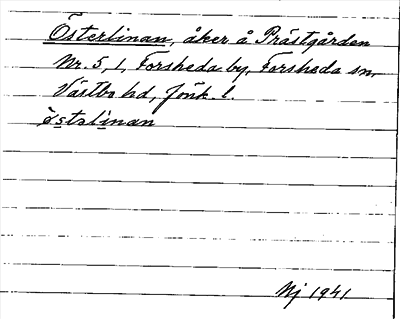 Österlinan, åker å Prästgården
Nr. 5, 1, Forsheda by, Forsheda sn,
Västbo hd, Jönk. l.
östəlinan
Nj 1941